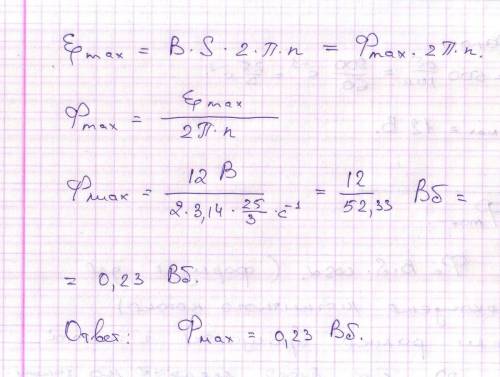 ℰmax = B · S · 2 · П · n = Фmax · 2П · n.
Фmax = ℰmax / 2П · n
Фмах = 12 В / 2 · 3,14 · 25/3 · c⁻¹ = 12 / 52,33 Вб =
= 0,23 Вб.
Ответ: Фмах = 0,23 Вб.